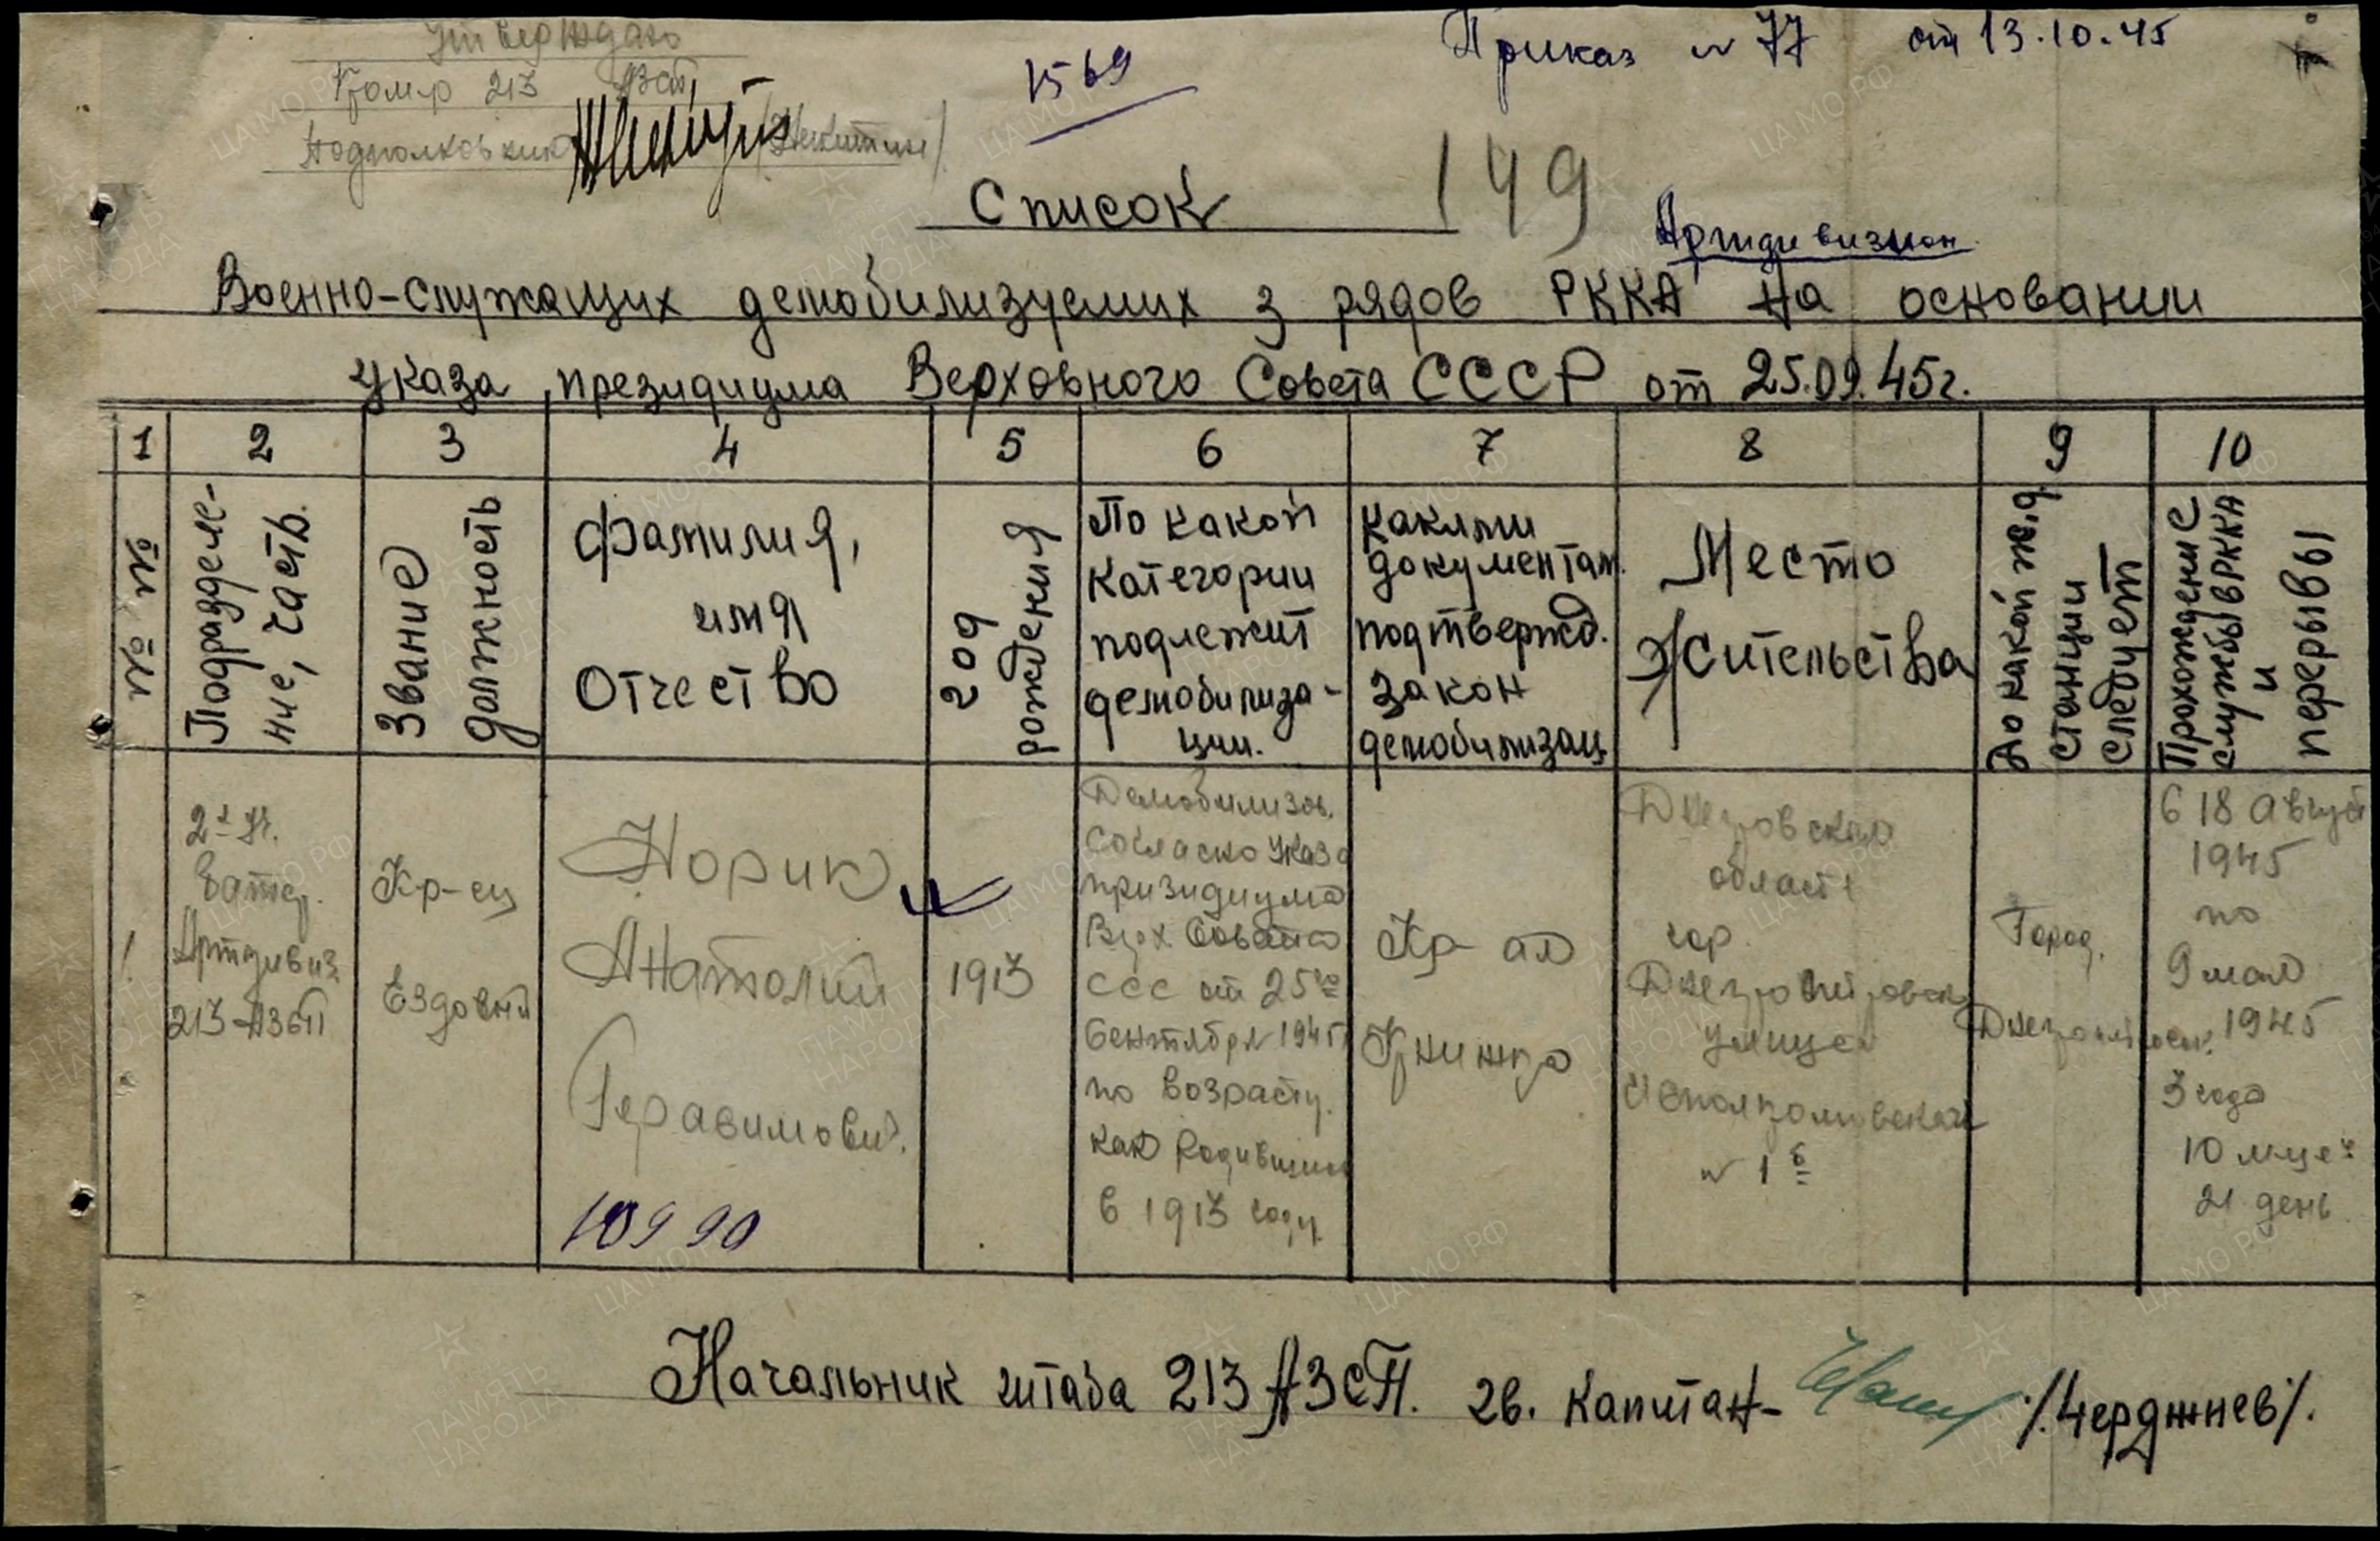 Утверждаю
Комдр 213 АЗСП
Подполковник /Никитин/
1569
Приказ № 77 от 13.10.45
Список
149
Артдивизион
Военно-служащих демобилизуемих з рядов РККА на основании
указа президиума Верховного Совета СССР от 25.09.45г.
1 2 3 4 5 6 7 8 9 10
№ № п/п
Подразделе-
ние, часть.
Звание
должность
Фамилия,
имя
Отчество
год
рождения
По какой
категории
подлежит
демобилиза-
ции.
Какими
документам.
подтвержд.
закон
демобилизац.
Место
Жительства
До какой ж.д.
станции
следует
Прохождение
службы в РККА
и
перерывы
1.
2-я
батар.
Артдивиз.
213 АЗСП
Кр-ец
Ездовый
Норик
Анатолий
Герасимович.
10990
1913
Демобилизов.
Согласно Указа
призидиума
Верх. Совета
ССС от 25го
Сентября 1945
по возрасту.
как родившийся
в 1913 году
Кр-ая
Книжка
Днепровская
область
гор.
Днепропетровск
улица
№ 1б
Город.
Днепропетровск.
С 18 август
1945
по
9 мая
1945
3 года
10 м-це
21 день
Начальник штаба 213 АЗСП. гв. Капитан- /Черджнев/.
ЦАМО РФ
ПАМЯТЬ
НАРОДА